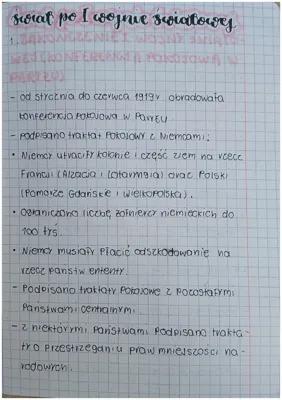 świat po I wojnie światowej
1.
- od stycznia do czerwca 1919r obradowała
konferencja pokojowa w Paryżu
- podpisano traktat pokojowy z Niemcami:
• Niemcy utraciły kolonie i część ziem na rzecz
Francji (Alzacja i Lotaryngia) oraz Polski
(Pomorze Gdańskie i Wielkopolska).
• Ograniczono liczbę żołnierzy niemieckich do
100 tyś.
• Niemcy musiały płacić odszkodowanie na
rzecz państw ententy.
- Podpisano traktaty pokojowe z pozostałymi
Państwami centralnymi.
- z niektórymi Państwami Podpisano trakta-
ty o przestrzeganiu praw mniejszości na-
rodowych.